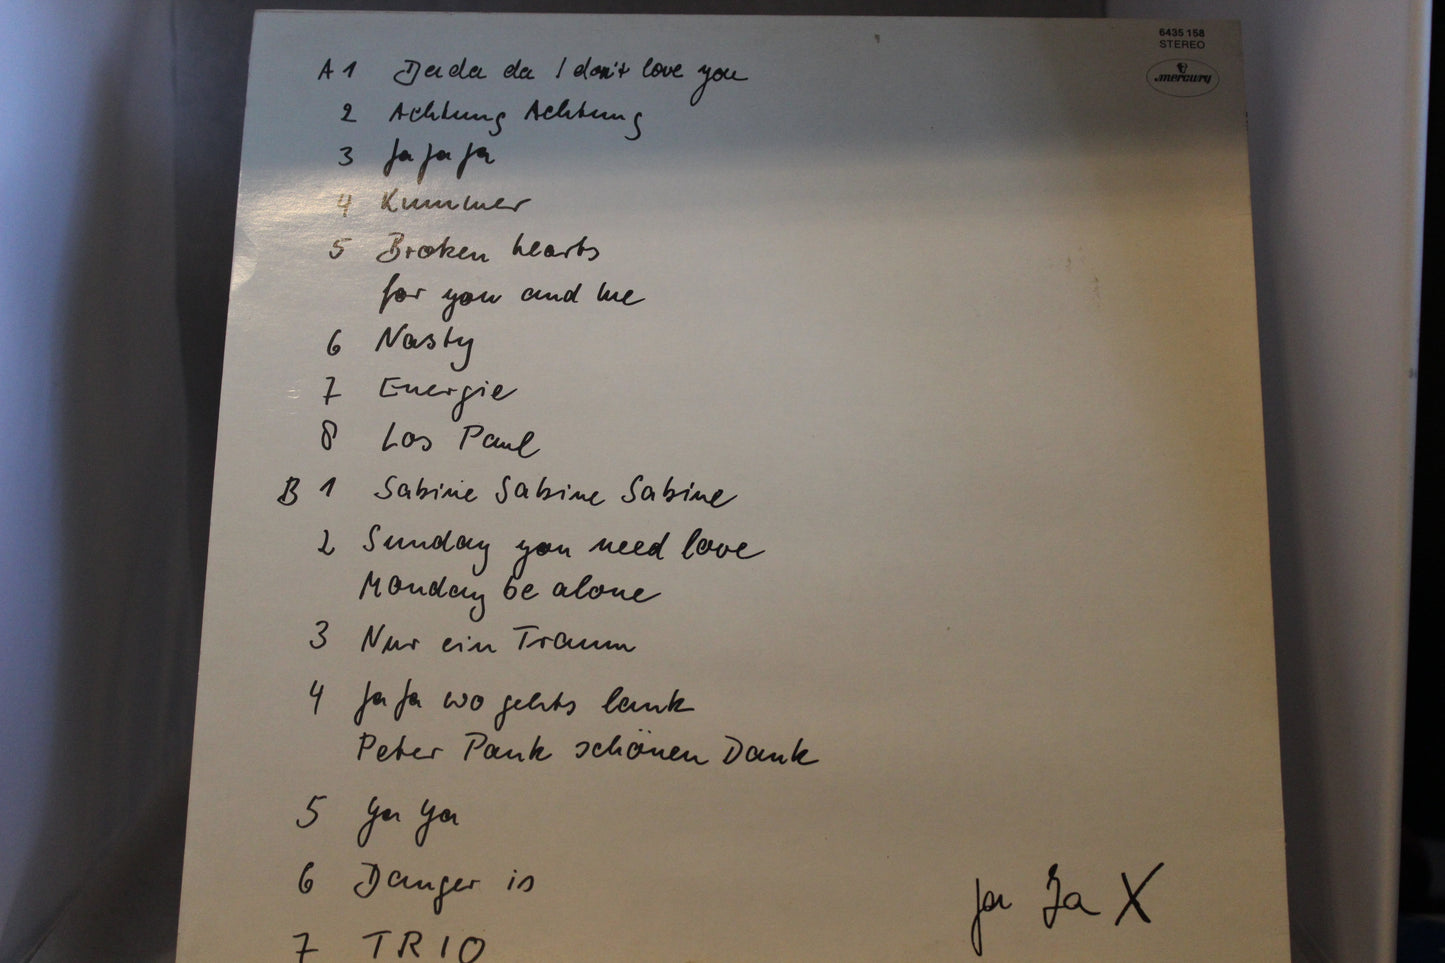 6435 158
STEREO
mercury
A 1 Dada da I don't love you
2 Achtung Achtung
3 Ja Ja Ja
4 Kummer
5 Broken hearts
for you and me
6 Nasty
7 Energie
8 Los Paul
B 1 Sabine Sabine Sabine
2 Sunday you need love
Monday be alone
3 Nur ein Traum
4 Ja Ja wo gehts lank
Peter Pank schönen Dank
5 Ya Ya
6 Danger is
7 TRIO
Ja Ja X